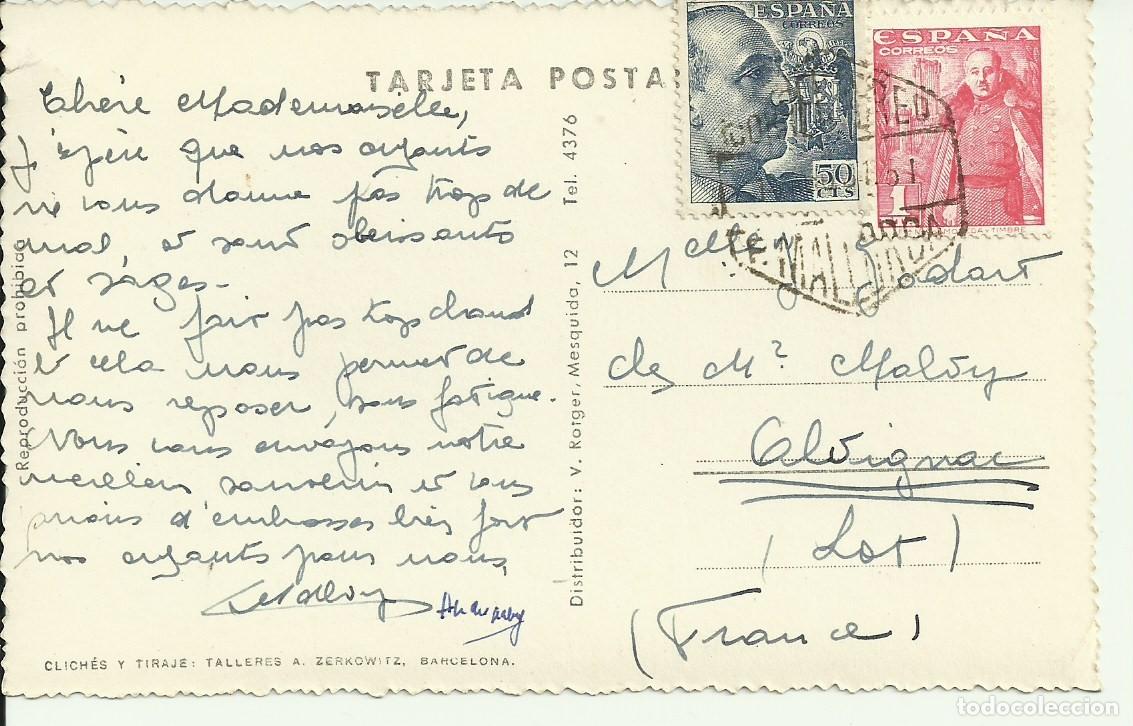 TARJETA POSTA
Chère Mademoiselle,
J'espère que nos enfants
ne vous donne pas trop de
mal, et sont obeissants
et sages.
Il ne fait pas trop chaud
et cela nous permet de
nous reposer, sans fatigue.
Nous vous envoyons notre
meilleur souvenir et vous
prions d'embrasser très fort
nos enfants pour nous
CLICHÉS Y TIRAJE: TALLERES A. ZERKOWITZ, BARCELONA.
Reproducción prohibida
Distribuidor: V. Rotger, Mesquida, 12 Tel. 4376
ESPAÑA
CORREOS
50
CTS
ESPAÑA
CORREOS
1
CORREO AEREO
51
MALLORCA
Melle Godart
de Mr Malvy
Alvignac
(Lot)
(France)
todocoleccion